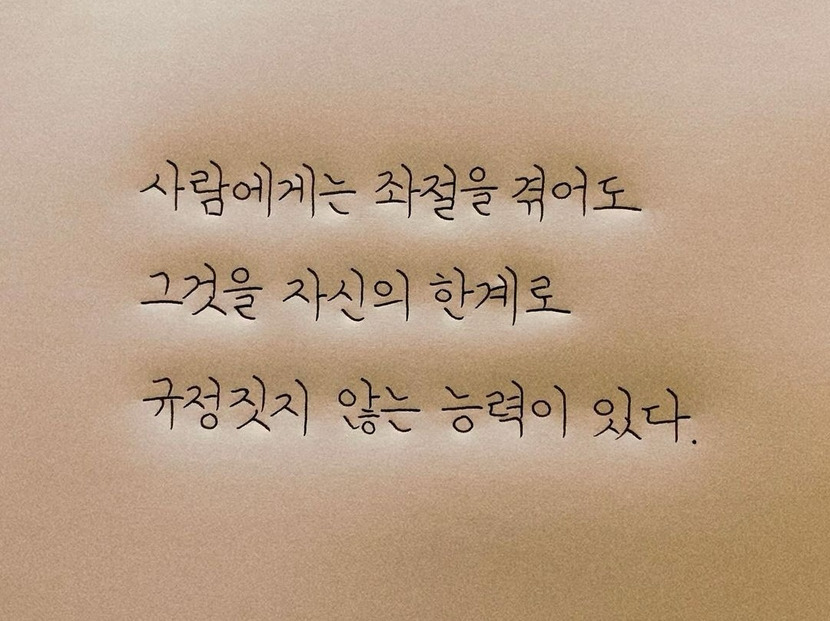 사람에게는 좌절을 겪어도
그것을 자신의 한계로
규정짓지 않는 능력이 있다.